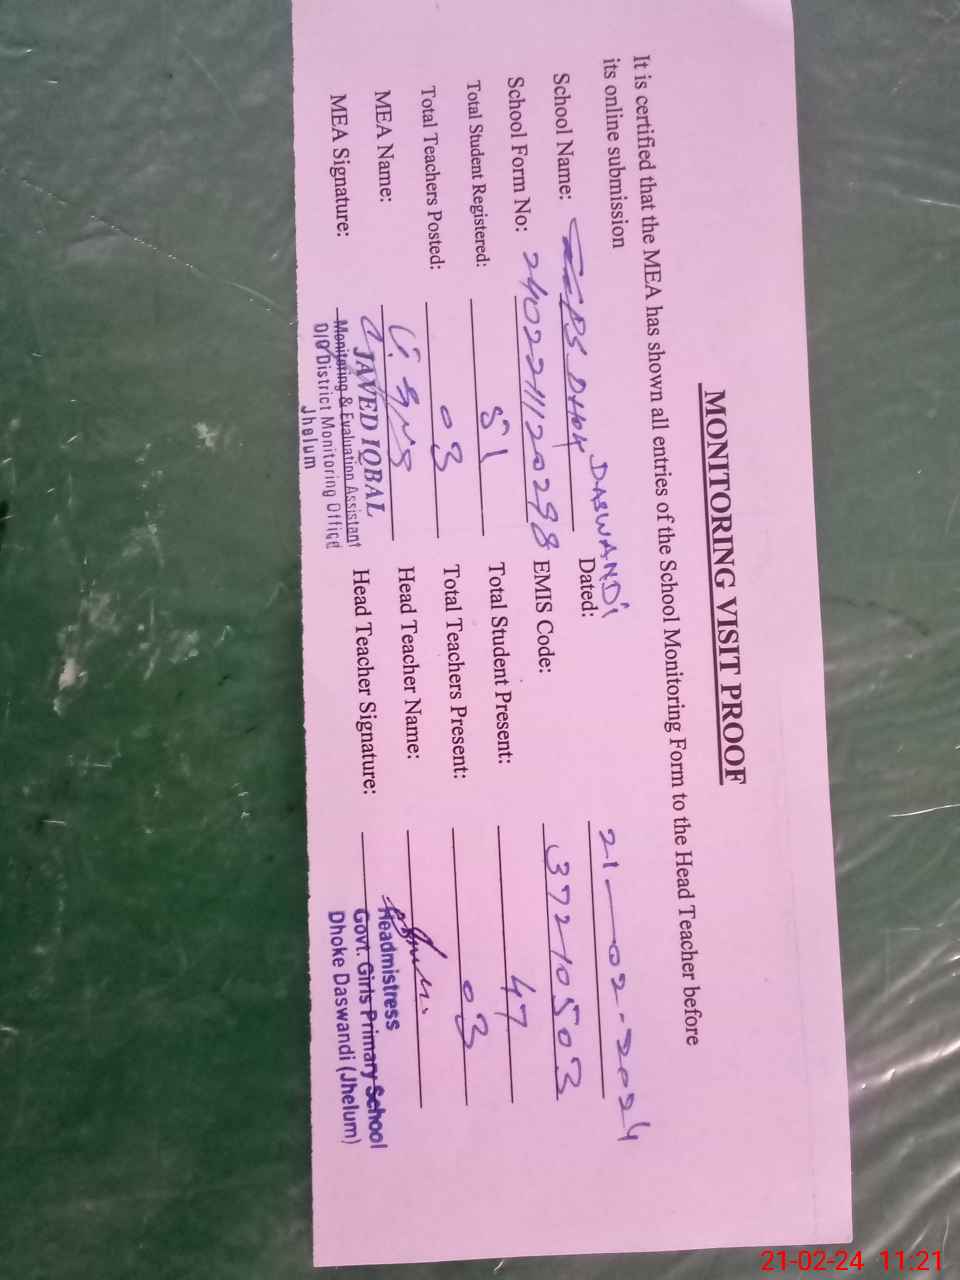 MONITORING VISIT PROOF
It is certified that the MEA has shown all entries of the School Monitoring Form to the Head Teacher before
its online submission
School Name: GGPS DHOK DASWANDI Dated: 21-02-2024
School Form No: EMIS Code: 37210503
Total Student Registered: 51 Total Student Present: 47
Total Teachers Posted: 03 Total Teachers Present: 03
MEA Name: Head Teacher Name:
MEA Signature: Head Teacher Signature:
JAVED IQBAL
Monitoring & Evaluation Assistant
O/O District Monitoring Office
Jhelum
Headmistress
Govt. Girls Primary School
Dhoke Daswandi (Jhelum)
21-02-24 11:21